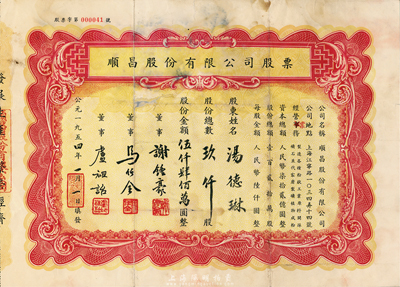 股票字第 000041 號
順昌股份有限公司股票
公司名稱 順昌股份有限公司
公司地點 上海江寧路一〇三四弄十四號
經營業務
資本總額 人民幣柒拾貳億圓整
股份總數 壹百貳拾萬股
每股金額 人民幣陸仟圓整
股東姓名 湯德琳
股份總數 玖仟股
股份金額 伍仟肆佰萬圓整
董事
董事 馬
董事 盧祖詒
公元一九五四年一月一日填發